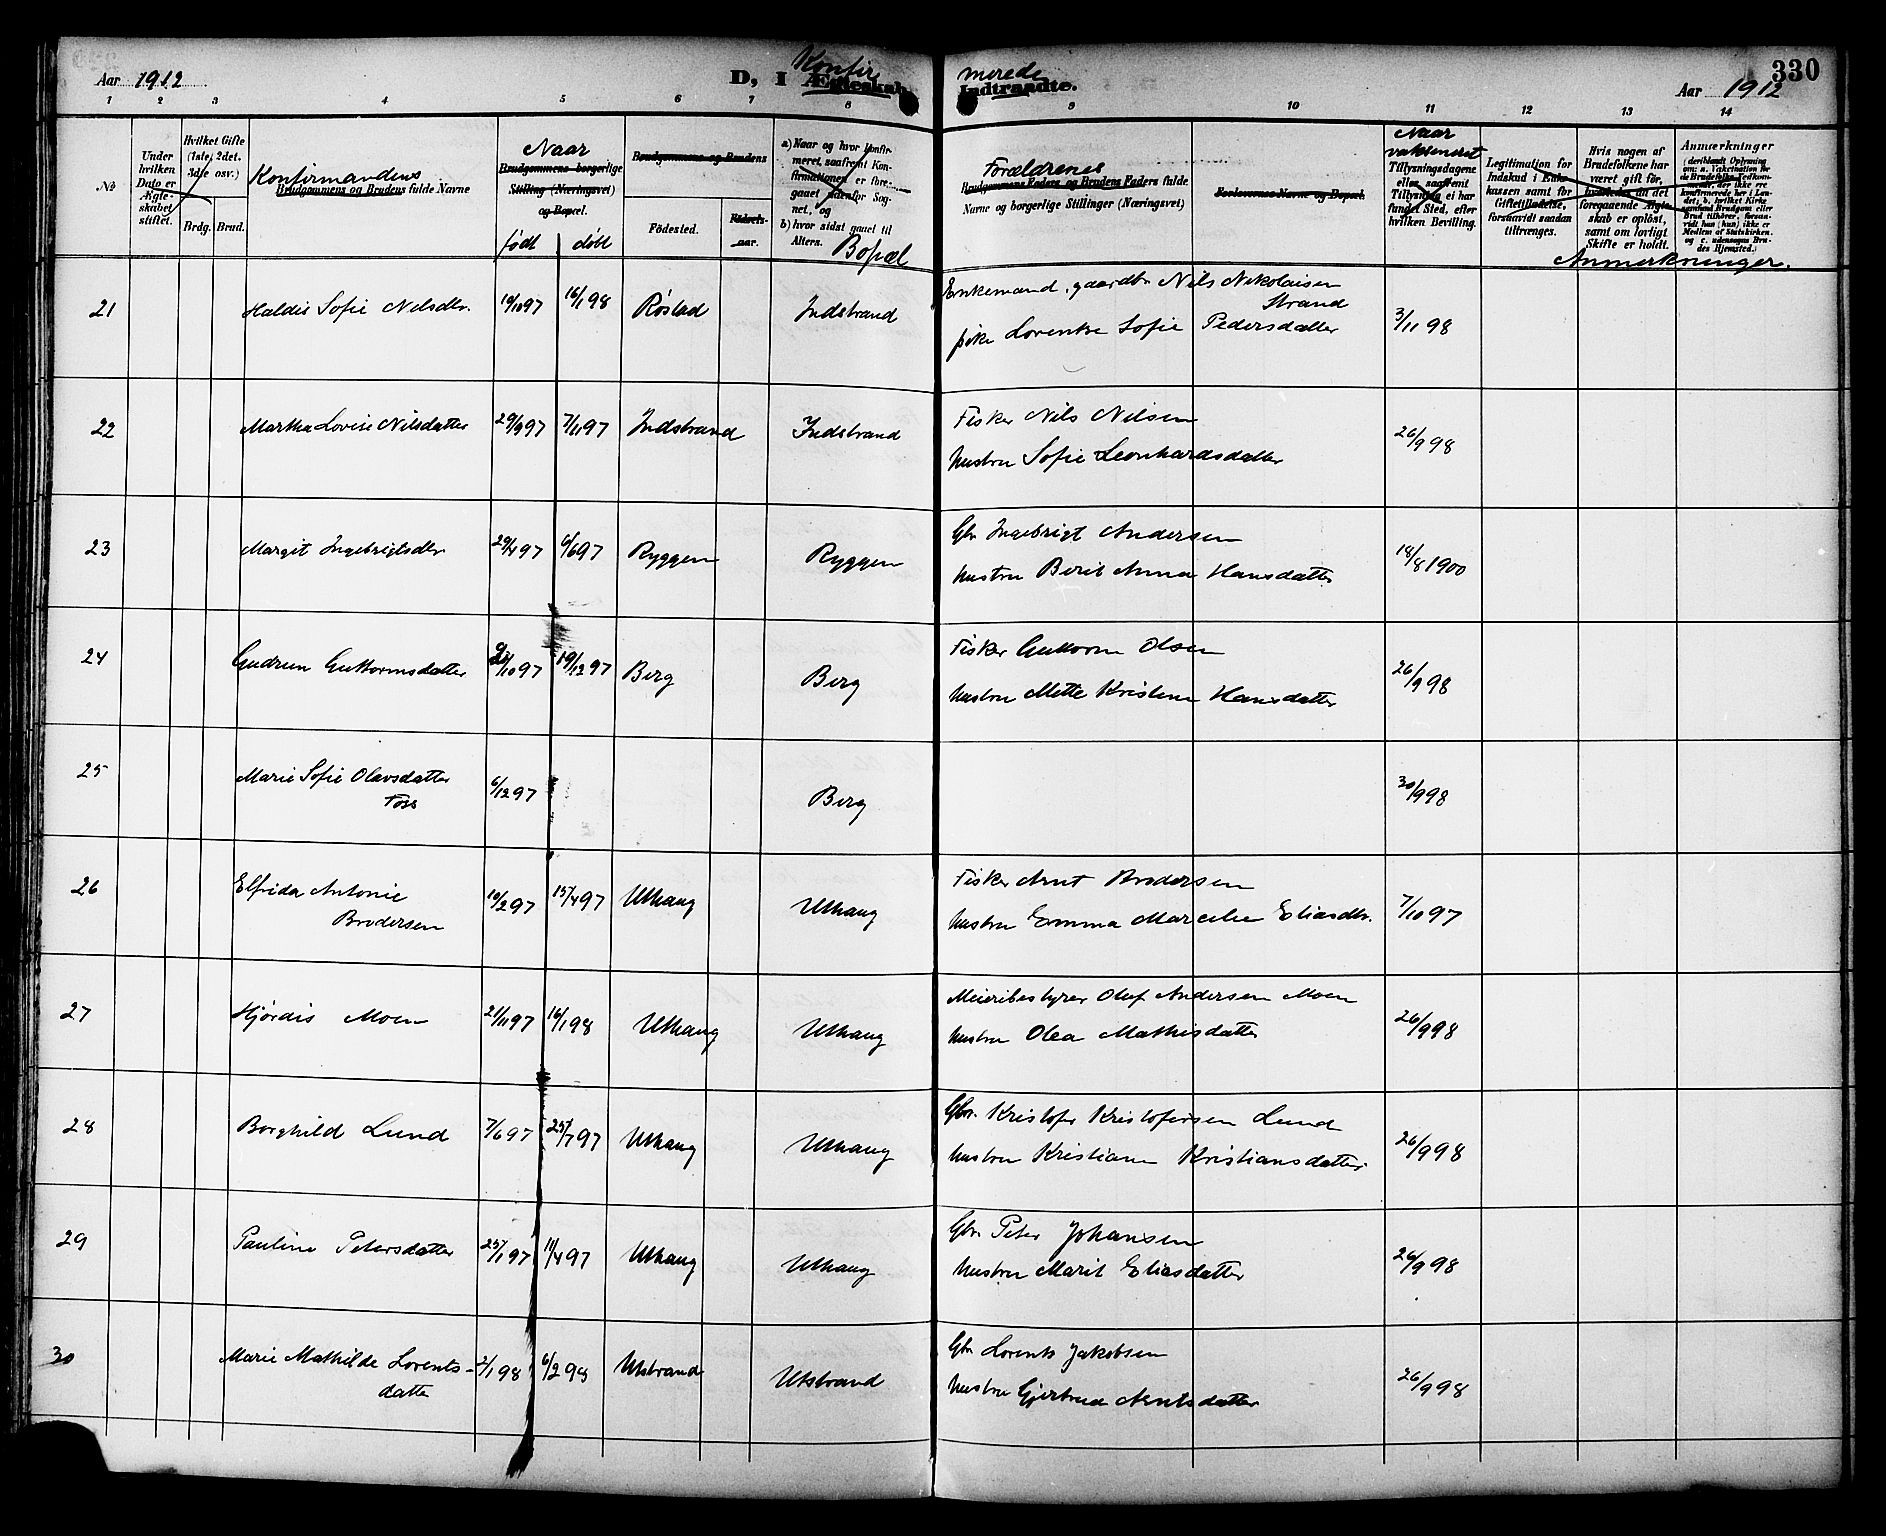 330
Aar 1912
D, I Ægteskab Indtraadte.
Konfirmerede
Aar 1912
1 2 3 4 5 6 7 8 9 10 11 12 13 14
№
Under hvilken Dato er Ægteskabet stiftet.
Hvilket Gifte (1ste, 2det, 3die osv.)
Brdg. Brud.
Konfirmandens
Brudgommens og Brudens fulde Navne
Naar
Brudgommens borgerlige Stilling (Næringsvei) og Bopæl.
født døbt
Brudgommens og Brudens
Fødested.
Fødselsaar.
a) Naar og hvor konfirmeret, saafremt Konfirmationen er foregaaet udenfor Sognet, og
b) hvor sidst gaaet til Alters.
Bopæl
Forældrenes
Brudgommens Faders og Brudens Faders fulde Navne og borgerlige Stillinger (Næringsvei)
Forlovernes Navne og Bopæl.
Naar vaksineret
Tillysningsdagene eller, saafremt Tillysning ei har fundet Sted, efter hvilken Bevilling.
Legitimation for Indskud i Enkekassen samt for Giftetilladelse, forsaavidt saadan tiltrænges.
Hvis nogen af Brudefolkene har været gift før, hvorledes da det foregaaende Ægteskab er opløst, samt om lovligt Skifte er holdt.
Anmærkninger
Anmerkninger.
21 Haldis Sofie Nilsdtr. 19/10 97 16/1 98 Røstad Indstrand Enkemand, gaardbr Nils Nikolaisen Strand
pike Lorentse Sofie Pedersdatter 3/11 98
22 Martha Lovise Nilsdatter 29/9 97 7/11 97 Indstrand Indstrand Fisker Nils Nilsen
hustru Sofie Leonhardsdatter 26/9 98
23 Margit Ingebrigtsdtr 29/4 97 6/6 97 Ryggen Ryggen Gbr Ingebrigt Andersen
hustru Berit Anna Hansdatter 18/8 1900
24 Gudrun Guttormsdatter /10 97 19/12 97 Berg Berg Fisker Guttorm Olsen
hustru Mette Kristine Hansdatter 26/9 98
25 Marie Sofie Olavsdatter
Foss 6/12 97 Berg 30/9 98
26 Elfrida Antonie
Brodersen 10/2 97 15/4 97 Uthaug Uthaug Fisker Arnt Brodersen
hustru Emma Marcelie Eliasdtr. 7/10 97
27 Hjørdis Moen 21/11 97 16/1 98 Uthaug Uthaug Meieribestyrer Oluf Andersen Moen
hustru Olea Mathisdatter 26/9 98
28 Borghild Lund 7/6 97 25/7 97 Uthaug Uthaug Gbr. Kristofer Kristofersen Lund
hustru Kristiane Kristiansdatter. 26/9 98
29 Pauline Petersdatter 25/1 97 11/4 97 Uthaug Uthaug Gbr. Peter Johansen
hustru Marit Eliasdatter 26/9 98
30 Marie Mathilde Lorents-
datter 2/1 98 6/2 98 Utstrand Utstrand Gbr Lorents Jakobsen
hustru Gjertrud Arntsdatter 26/9 98